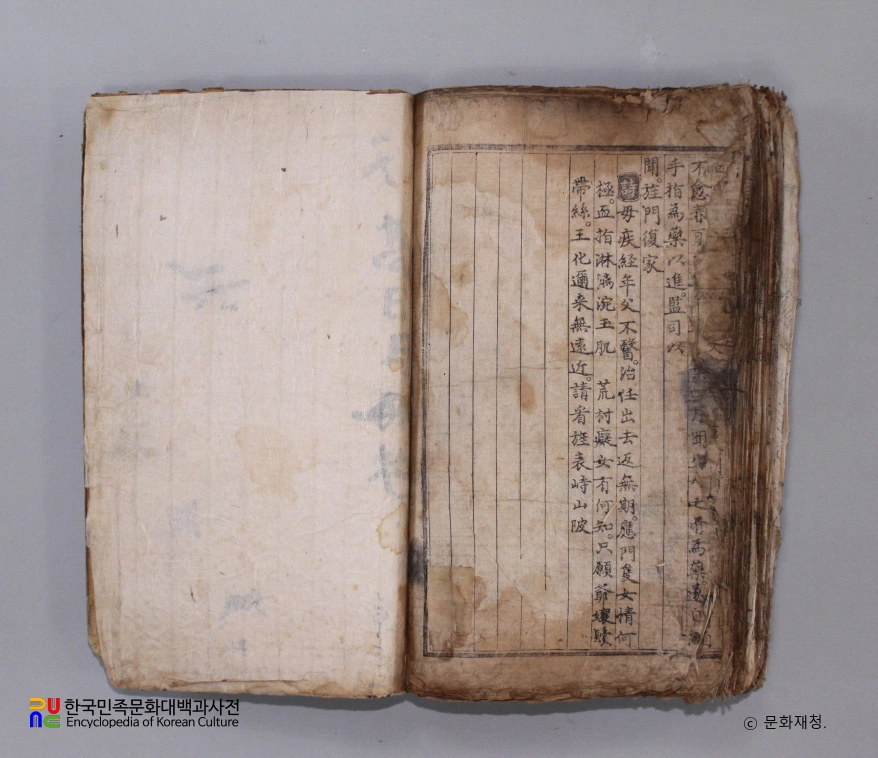 不愈春夏 人之骨為藥
手指為藥以進。監司以
聞。旌門復家
詩 母疾經年父不醫。治任出去返無期。應門隻女情何
極。血指淋漓浣玉肌 荒村癡女有何知。只願爺孃
帶絲。王化邇來無遠近。請看旌表峙山陂
한국민족문화대백과사전
Encyclopedia of Korean Culture
ⓒ 문화재청.